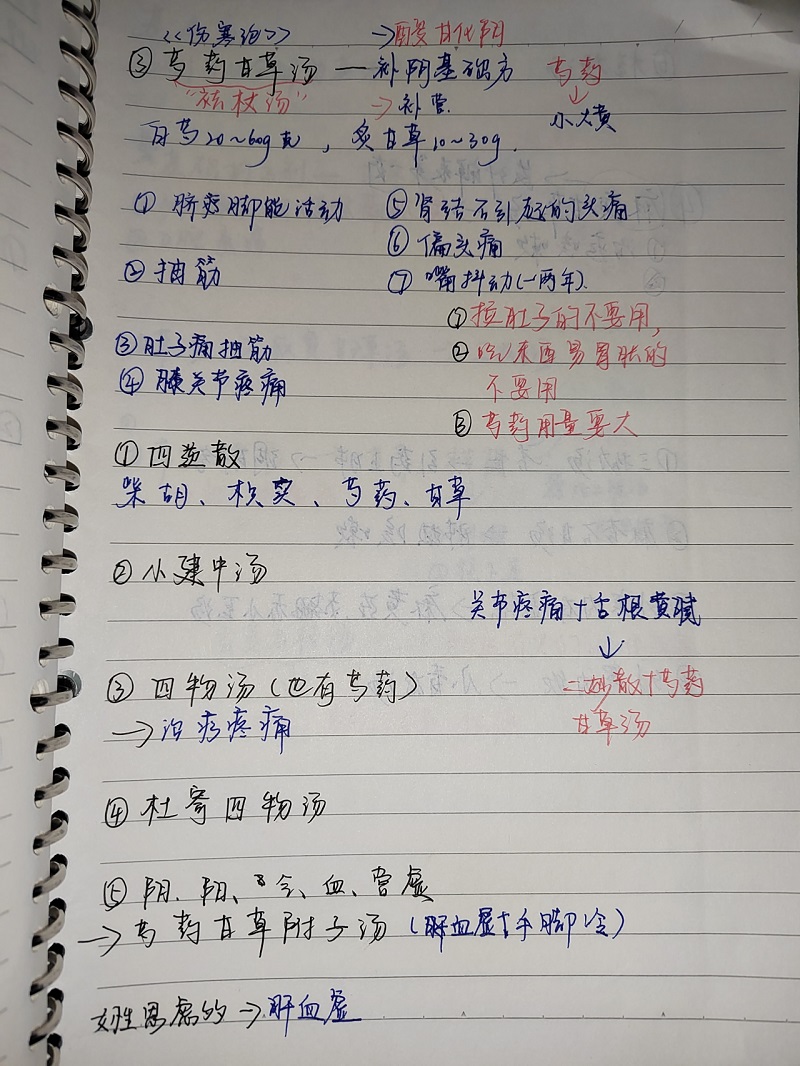 <<伤寒论>> →酸甘化阴
③ 芍药甘草汤 — 补阴基础方 芍药
"祛杖汤" →补营 ↓
小大黄
白芍20~60g克，炙甘草10~30g.
① 脐旁脚能活动 ⑤肾结石引起的头痛
⑥ 偏头痛
② 抽筋 ⑦ 嘴抖动(一两年).
① 拉肚子的不要用，
③肚子痛抽筋 ② 吃东西易胃胀的
④ 膝关节疼痛 不要用
③ 芍药用量要大
① 四逆散
柴胡、枳实、芍药、甘草
② 小建中汤
关节疼痛+舌根黄腻
↓
③ 四物汤（也有芍药） 二妙散+芍药
→治疗疼痛 甘草汤
④ 杜寄四物汤
⑤ 阴、阳、气、血、营虚
→芍药甘草附子汤（肝血虚+手脚冷）
女性思虑的→肝血虚